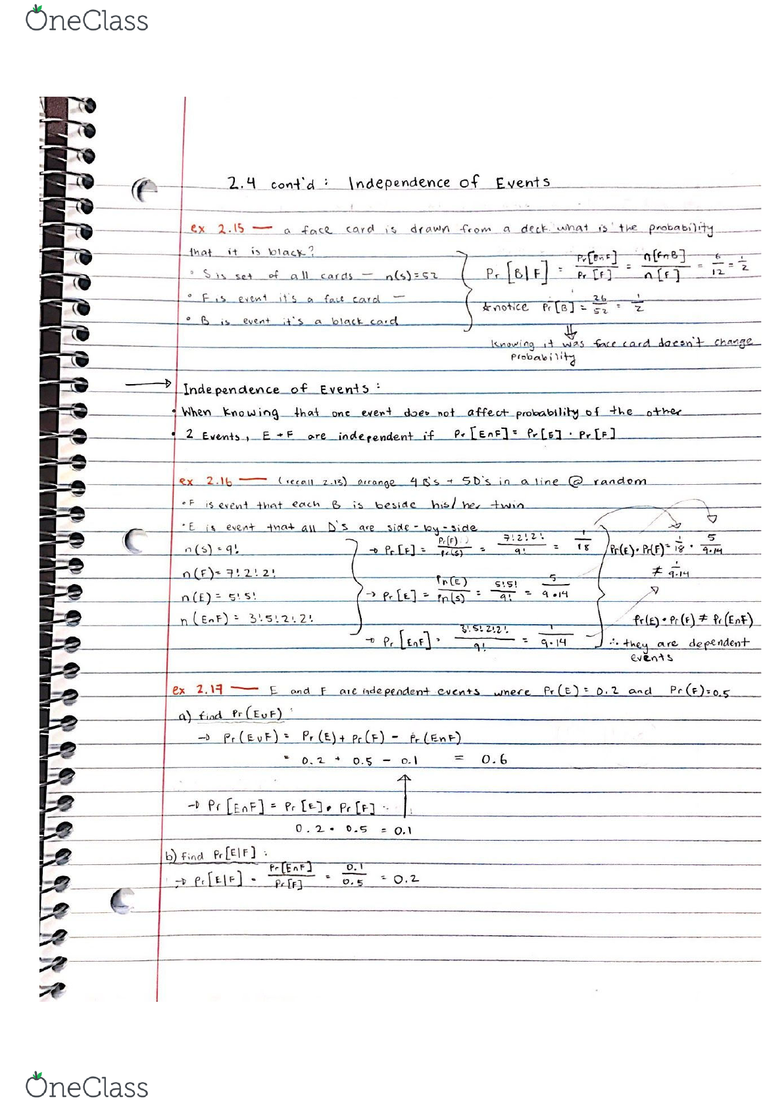 OneClass
2.4 cont'd : Independence of Events
ex 2.15 — a face card is drawn from a deck what is the probability
that it is black?
• S is set of all cards — n(s)=52
• F is event it's a face card —
• B is event it's a black card
Pr[B|F] = Pr[B∩F]/Pr[F] = n[F∩B]/n[F] = 6/12 = 1/2
☆notice Pr[B] = 26/52 = 1/2
⇓
Knowing it was face card doesn't change
probability
→ Independence of Events :
• When knowing that one event does not affect probability of the other
• 2 Events, E + F are independent if Pr[E∩F] = Pr[E] · Pr[F]
ex 2.16 — (recall 2.13) arrange 4 B's + 5 D's in a line @ random
• F is event that each B is beside his/her twin
• E is event that all D's are side-by-side
n(s) = 9!
n(F) = 7!2!2!
n(E) = 5!5!
n(E∩F) = 3!5!2!2!
→ Pr[F] = Pr(F)/Pr(s) = 7!2!2!/9! = 1/18
→ Pr[E] = Pn(E)/Pn(s) = 5!5!/9! = 5/9·14
→ Pr[E∩F] = 3!5!2!2!/9! = 1/9·14
Pr(E)·Pr(F) = 1/18 · 5/9·14
≠ 1/9·14
Pr(E)·Pr(F) ≠ Pr(E∩F)
∴ they are dependent
events
ex 2.17 — E and F are independent events where Pr(E)=0.2 and Pr(F)=0.5
a) find Pr(E∪F) :
→ Pr(E∪F) = Pr(E) + Pr(F) − Pr(E∩F)
= 0.2 + 0.5 − 0.1 = 0.6
→ Pr[E∩F] = Pr[E] · Pr[F]
0.2 · 0.5 = 0.1
b) find Pr[E|F] :
→ Pr[E|F] = Pr[E∩F]/Pr[F] = 0.1/0.5 = 0.2
OneClass